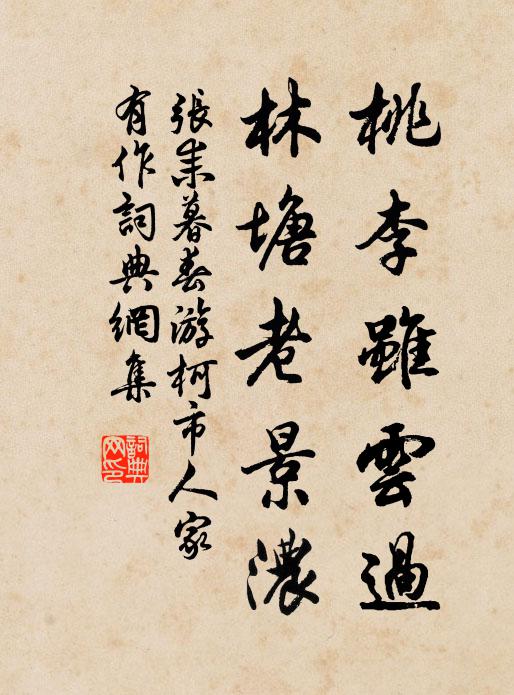 桃李雖雲過
林塘老景濃
張耒暮春游柯市人家
有作詞典網集
詞典
网印